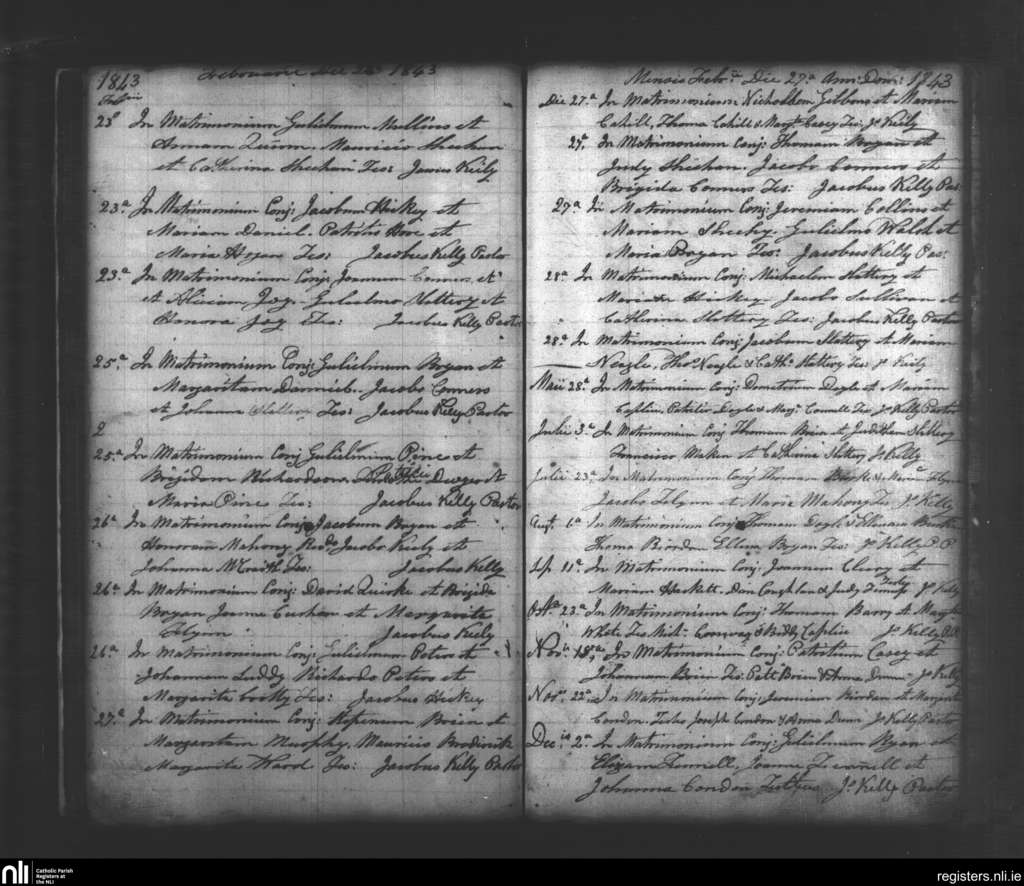 1843
Februarii Die 23 1843
23a In Matrimonium Gulielmum Mullins et
Annam Quinn. Mauricio Sheehan
et Catherina Sheehan Tes: James Kiely
23.a In Matrimonium Conj: Jacobum Hickey et
Mariam Daniel. Patritio Hore et
Maria Hogan Tes: Jacobus Kelly Pastor
23.a In Matrimonium Conj: Joannum Conners et
et Aliciam Joy. Gulielmo Slattery et
Honora Joy Tes: Jacobus Kelly Pastor
25.a In Matrimonium Conj: Gulielmum Bryan et
Margaritam Danniel. Jacobo Conners
et Johanna Slattery Tes: Jacobus Kelly Pastor
2
25.a In Matrimonium Conj Gulielmum Pine et
Brigidam Richardson Patrici Dwyer et
Maria Pine Tes: Jacobus Kelly Pastor
26a In Matrimonium Conj: Jacobum Bryan et
Honoram Mahony Jacobo Kiely et
Johanna McCraith Tes: Jacobus Kelly
26a In Matrimonium Conj: David Quirke et Brigida
Bryan Joanne et Margarita
Flynn Jacobus Kiely
26.a In Matrimonium Conj: Gulielmum Peters et
Johannam Luddy Richardo Peters et
Margarita Tes: Jacobus Hickey
27.a In Matrimonium Conj: Brien et
Margaritam Murphy. Mauricio Brodirick
Margarita Ward Tes: Jacobus Kelly Pastor
Mensis Feb: Die 27.a Ann: Dom: 1843
Die 27.a In Matrimonium Nicholhem Gibbons et Mariam
Cahill, Thoma Cahill & Margt Casey Tes: Js Kiely
27. In Matrimonium Conj: Thomam Bryan et
Judy Sheehan. Jacobo Conners et
Brigida Conners Tes: Jacobus Kelly Pas:
27a In Matrimonium Conj: Jeremiam Collins et
Mariam Sheehy. Gulielmo Walsh et
Maria Bryan Tes: Jacobus Kelly Pas:
28a In Matrimonium Conj: Michaelem Slattery et
Maria Hickey. Jacobo Sullivan et
Catherina Slattery Tes: Jacobus Kelly Pastor
28.a In Matrimonium Conj Jacobum Slattery et Mariam
Neagle, Thos Neagle & Cath: Slattery Tes: Js Kiely
Maii 28.a In Matrimonium Conj: Demetrium Doyle et Mariam
Caplice, Patritio Doyle & Mary Connell Tes Js Kelly Pastor
Julii 3.a In Matrimonium Conj Thomam Brien et Juditham Slattery
Francisco Maken et Catherina Slattery Js Kelly
Julii 23.a In Matrimonium Conj Thomam & Flynn
Jacobo Flynn et Maria Mahony Tes Js Kelly
Augt. 6a In Matrimonium Conj: Thomam Doyle & Ellenam
Thoma Riordan Ellena Bryan Tes: Js Kelly P.P.
Sep. 11a. In Matrimonium Conj: Joannem Clery et
Mariam Hackett. Dan Coughlan & Judy Js Kelly
Oct. 23a In Matrimonium Conj: Thomam Barry et Margt
White Tes Mich: Conway & Biddy Caplice Js Kelly P.P.
Nov. 18.a In Matrimonium Conj: Patritium Casey et
Johannam Brien Ts: Patt Brien & Anna Dunn. Js Kelly
Nov. 22.a In Matrimonium Conj: Jeremiam Riordan et Margarita
Condon, Joseph Condon & Anna Dunn Js Kelly Pastor
Dec: 2.a In Matrimonium Conj: Gulielmum Ryan et
Elizam Fennell, Joanne Fennell et
Johanna Condon Testibus Js Kelly Pastor
nli
Catholic Parish
Registers at
the NLI
registers.nli.ie